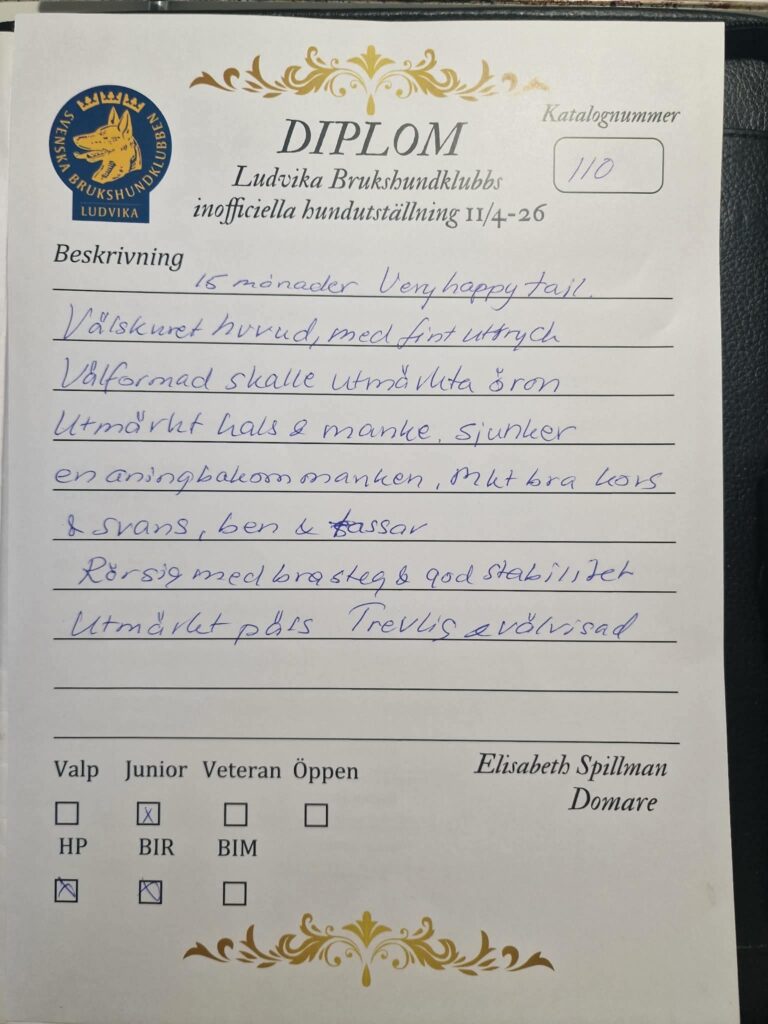 SVENSKA BRUKSHUNDKLUBBEN
LUDVIKA
Katalognummer
110
DIPLOM
Ludvika Brukshundklubbs
inofficiella hundutställning 11/4-26
Beskrivning
15 månader Very happy tail.
Välskuret huvud, med fint uttryck
Välformad skalle utmärkta öron
Utmärkt hals & manke, sjunker
en aning bakom manken, Mkt bra kors
& svans, ben & tassar
Rörsig med bra steg & god stabilitet
Utmärkt päls Trevlig & välvisad
Valp Junior Veteran Öppen
x
HP BIR BIM
x x
Elisabeth Spillman
Domare